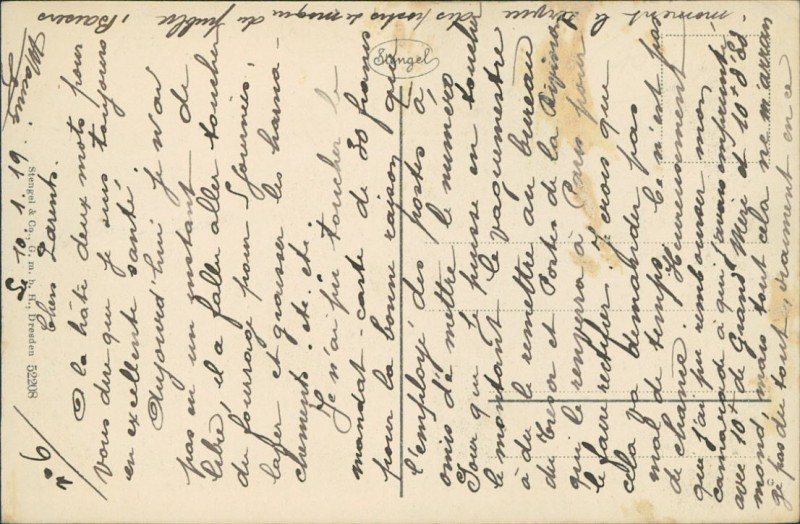 S. 10.1.19.
Chers Parents.
A la hâte deux mots pour
vous dire que je suis toujours
en excellente santé.
Aujourd'hui je n'ai
pas eu un instant de
libre il a fallu aller toucher
du fourrage pour
laver et graisser les harna-
chements etc etc.
Je n'ai pu toucher le
mandat-carte de 30 francs
pour la bonne raison que
l'employé des postes à
omis de mettre le numéro
Pour que je puisse en toucher
le montant le vaguemestre
à du le remettre au bureau
du Trésor et Postes de la
qui le renverra à Paris pour
le faire rectifier. Je crois que
cella va demander pas
mal de temps. Ce n'est pas
de chance. Heureusement
que j'ai pu rembourser mon
camarade à qui j'avais emprunté
avec 10+ de Grand Mère et 10+
mond, mais tout cela ne m'arran
ge pas du tout, vraiment en ce
moment le service des postes se moque du public, Baisers
Stengel
Stengel & Co., G. m. b. H., Dresden 52208